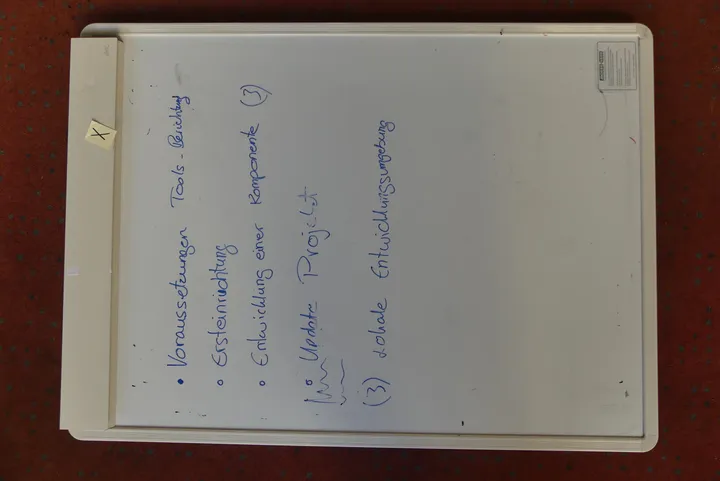 • Voraussetzungen Tools -
• Ersteinrichtung
• Entwicklung einer Komponente (3)
• Update Projekt
(3) Lokale Entwicklungsumgebung
X